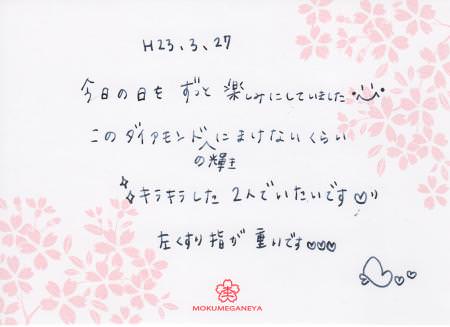 H23、3、27
今日の日を ずっと 楽しみにしていました
このダイアモンドの輝きにまけないくらい
キラキラした 2人でいたいです♡
左くすり指が 重いです♡♡♡
MOKUMEGANEYA